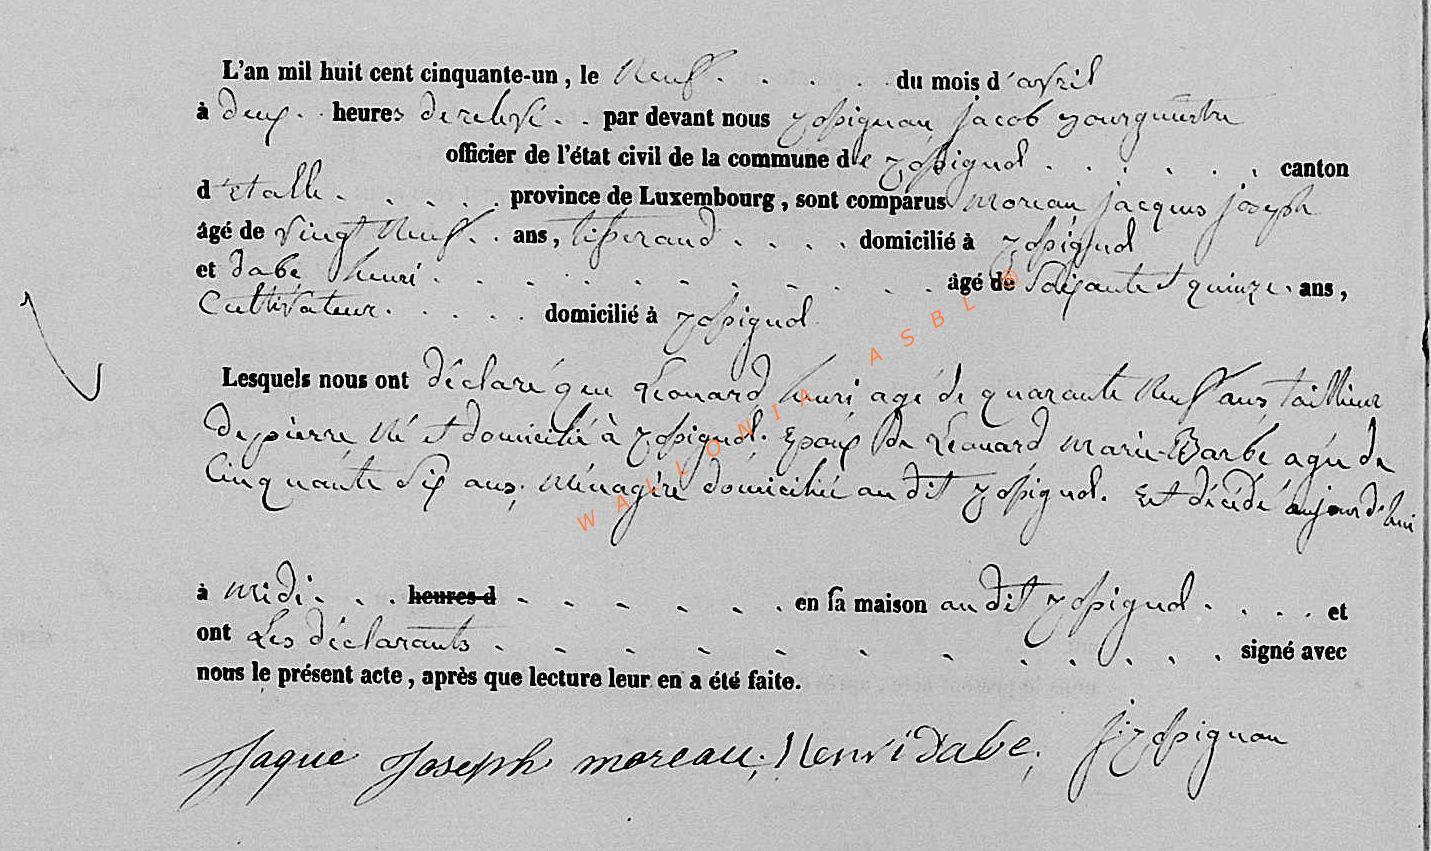 L'an mil huit cent cinquante-un, le Neuf . . . . . du mois d'avril
à deux . . heures de relevé . . par devant nous Rossignon Jacob Bourgmestre
officier de l'état civil de la commune de Rossignol . . . . . . canton
d'Etalle . . . . . province de Luxembourg, sont comparus Moreau jacques joseph
âgé de vingt Neuf . . ans, tisserand . . . . domicilié à Rossignol
et dabe henri . . . . . . . . . . âgé de Soixante et quinze . ans,
Cultivateur . . . . . domicilié à Rossignol
Lesquels nous ont déclaré que Léonard henri agé de quarante Neuf ans taillieur
de pierre Né et domicilié à Rossignol. Epoux de Léonard Marie-Barbe agée de
Cinquante Six ans, Ménagère domiciliée au dit Rossignol. Est décédé aujourd'hui
à Midi . . . heures d . . . . . . en sa maison au dit Rossignol . . . . et
ont Les déclarants . . . . . . . . . . . signé avec
nous le présent acte, après que lecture leur en a été faite.
Jaque Joseph moreau, Henri dabe, J Rossignon
WALLONIA ASBL ©